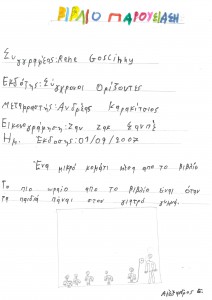 ΒΙΒΛΙΟ ΠΑΡΟΥΣΙΑΣΗ
Συγγραφέας: Rene Goscinny
Εκδότης: Σύγχρονοι Ορίζοντες
Μεταφραστής: Ανδρέας Καρακίτσιος
Εικονογράφηση: Ζαν Ζακ Σανπέ
Ημ. Εκδοσης: 01/09/2007
Ένα μικρό κομάτι μέσα απο το βιβλίο
Το πιο ωραίο απο το βιβλίο είναι όταν
τα παιδιά πάνε στον γιατρό